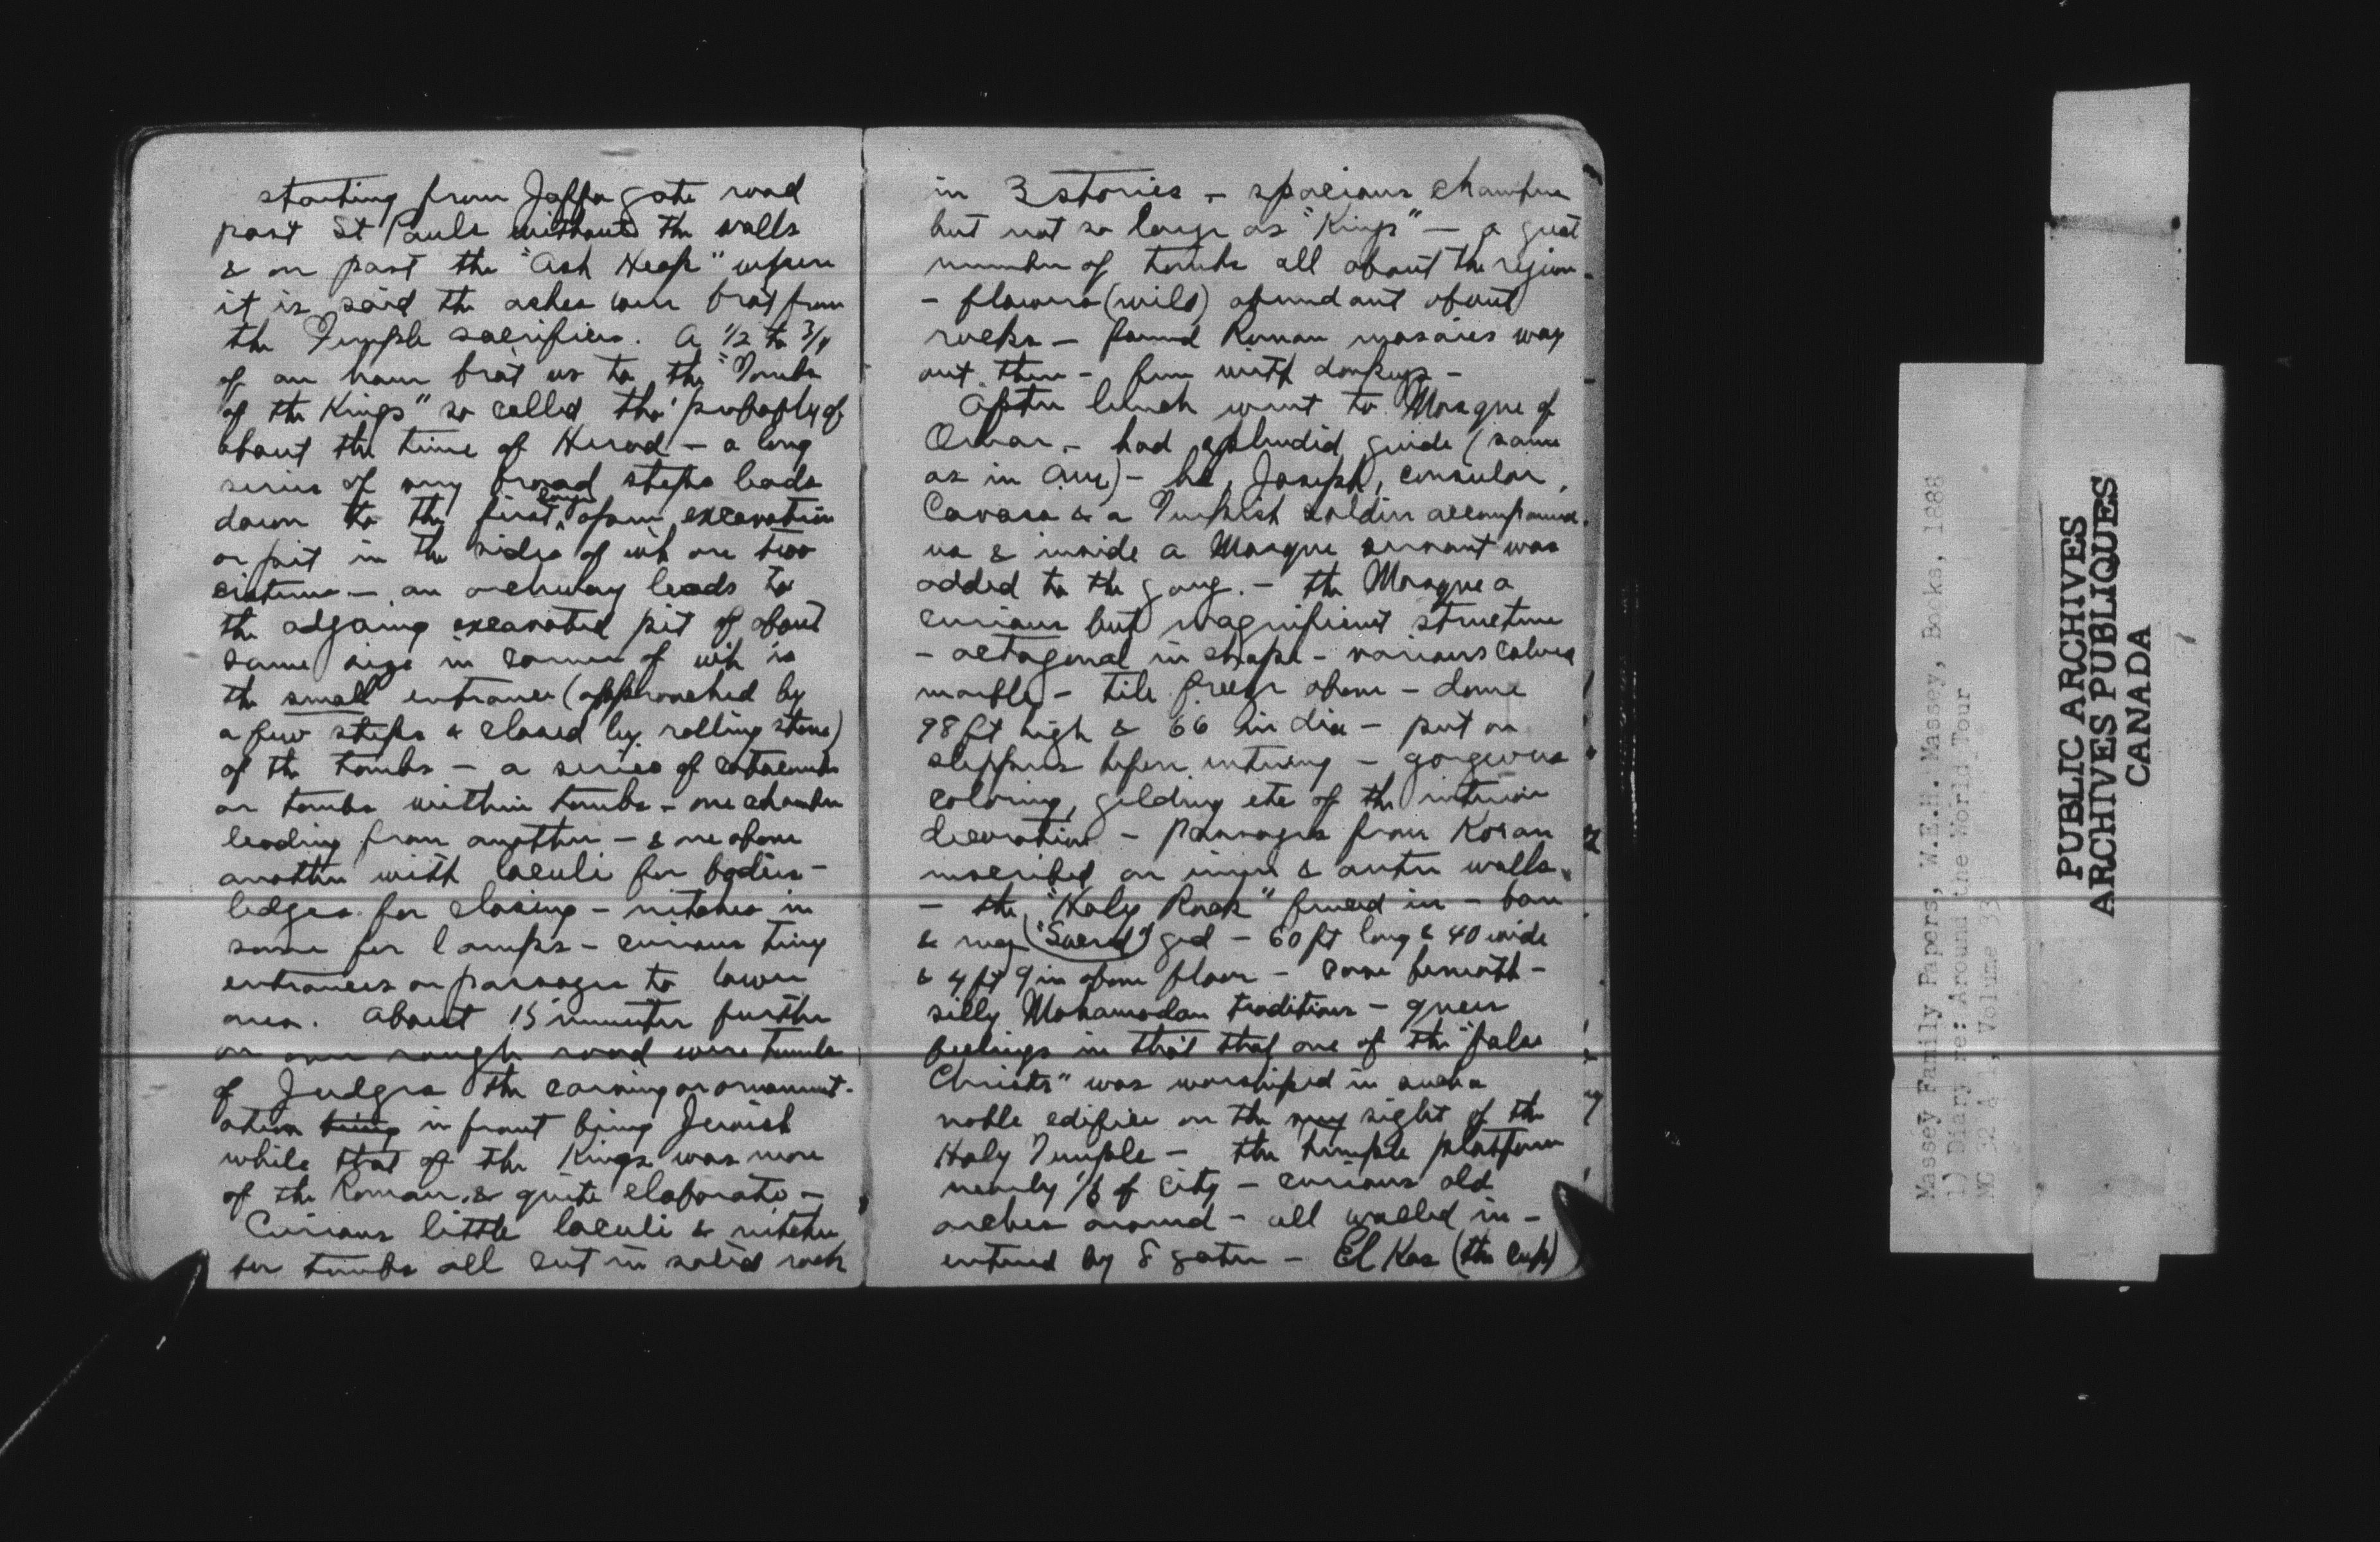 starting from Jaffa gate road
past St Pauls without the walls
& on past the "Ash Heap" where
it is said the ashes were brot from
the Temple sacrifices. A 1/2 to 3/4
of an hour brot us to the "Tombs
of the Kings" so called tho' probably of
about the time of Herod - a long
series of very broad steps leads
down to the first large open excavation
or pit in the sides of wh are two
cisterns - an archway leads to
the adjoing excavated pit of about
same size in corner of wh is
the small entrance (approached by
a few steps & closed by rolling stone)
of the tombs - a series of catacombs
or tombs within tombs - one chamber
leading from another - & one above
another with loculi for bodies -
ledges for closing - nitches in
some for lamps - curious tiny
entrances or passages to lower
ones. About 15 minutes further
on over rough road were tombs
of Judges the carving or ornament-
ation being in front being Jewish
while that of the Kings was more
of the Roman & quite elaborate -
Curious little loculi & nitches
for tombs all cut in solid rock
in 3 stories - spacious chambers
but not so large as "Kings" - a great
number of tombs all about the region -
- flowers (wild) abundant about
rocks - found Roman mosaics way
out there - fun with donkeys -
After lunch went to Mosque of
Omar - had splendid guide (same
as in am) - he, Joseph, consular
Cavass & a Turkish soldier accompanied
us & inside a Mosque servant was
added to the gang. - the Mosque a
curious but magnificent structure
- octagonal in shape - various colored
marble - tile frieze above - dome
98 ft high & 66 in dia - put on
slippers before entering - gorgeous
coloring, gilding etc of the interior
decoration - Passages from Koran
inscribed on inner & outer walls.
- the "Holy Rock" fenced in - bare
& ("Sacred") - 60 ft long & 40 wide
& 4 ft 9 in above floor - cave beneath -
silly Mohamodan traditions - queer
feelings in that that one of the "false
Christs" was worshiped in such a
noble edifice on the very sight of the
Holy Temple - the temple platform
nearly 1/6 of city - curious old
arches around - all walled in -
entered by 8 gates - El Kas (the Cup)
PUBLIC ARCHIVES
ARCHIVES PUBLIQUES
CANADA
Massey Family Papers, W.E.H. Massey, Books, 1888
1) Diary re: Around the World Tour
MG 32 A 1, Volume 33